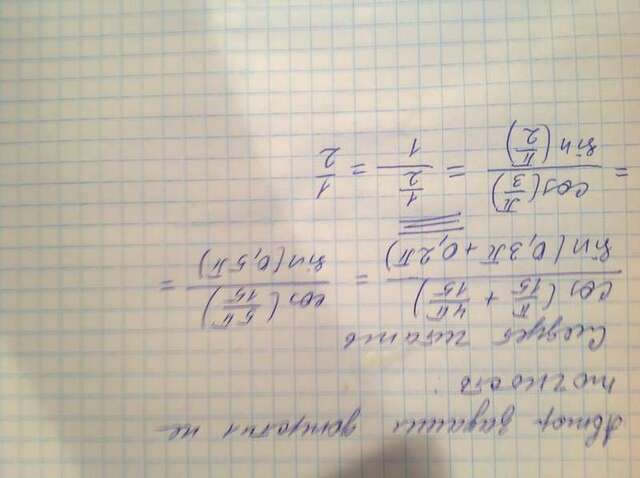 Автор задания допустил не
точность:
Следует читать
cos(π/15 + 4π/15) / sin(0,3π + 0,2π) = cos(5π/15) / sin(0,5π) =
= cos(π/3) / sin(π/2) = 1/2 / 1 = 1/2